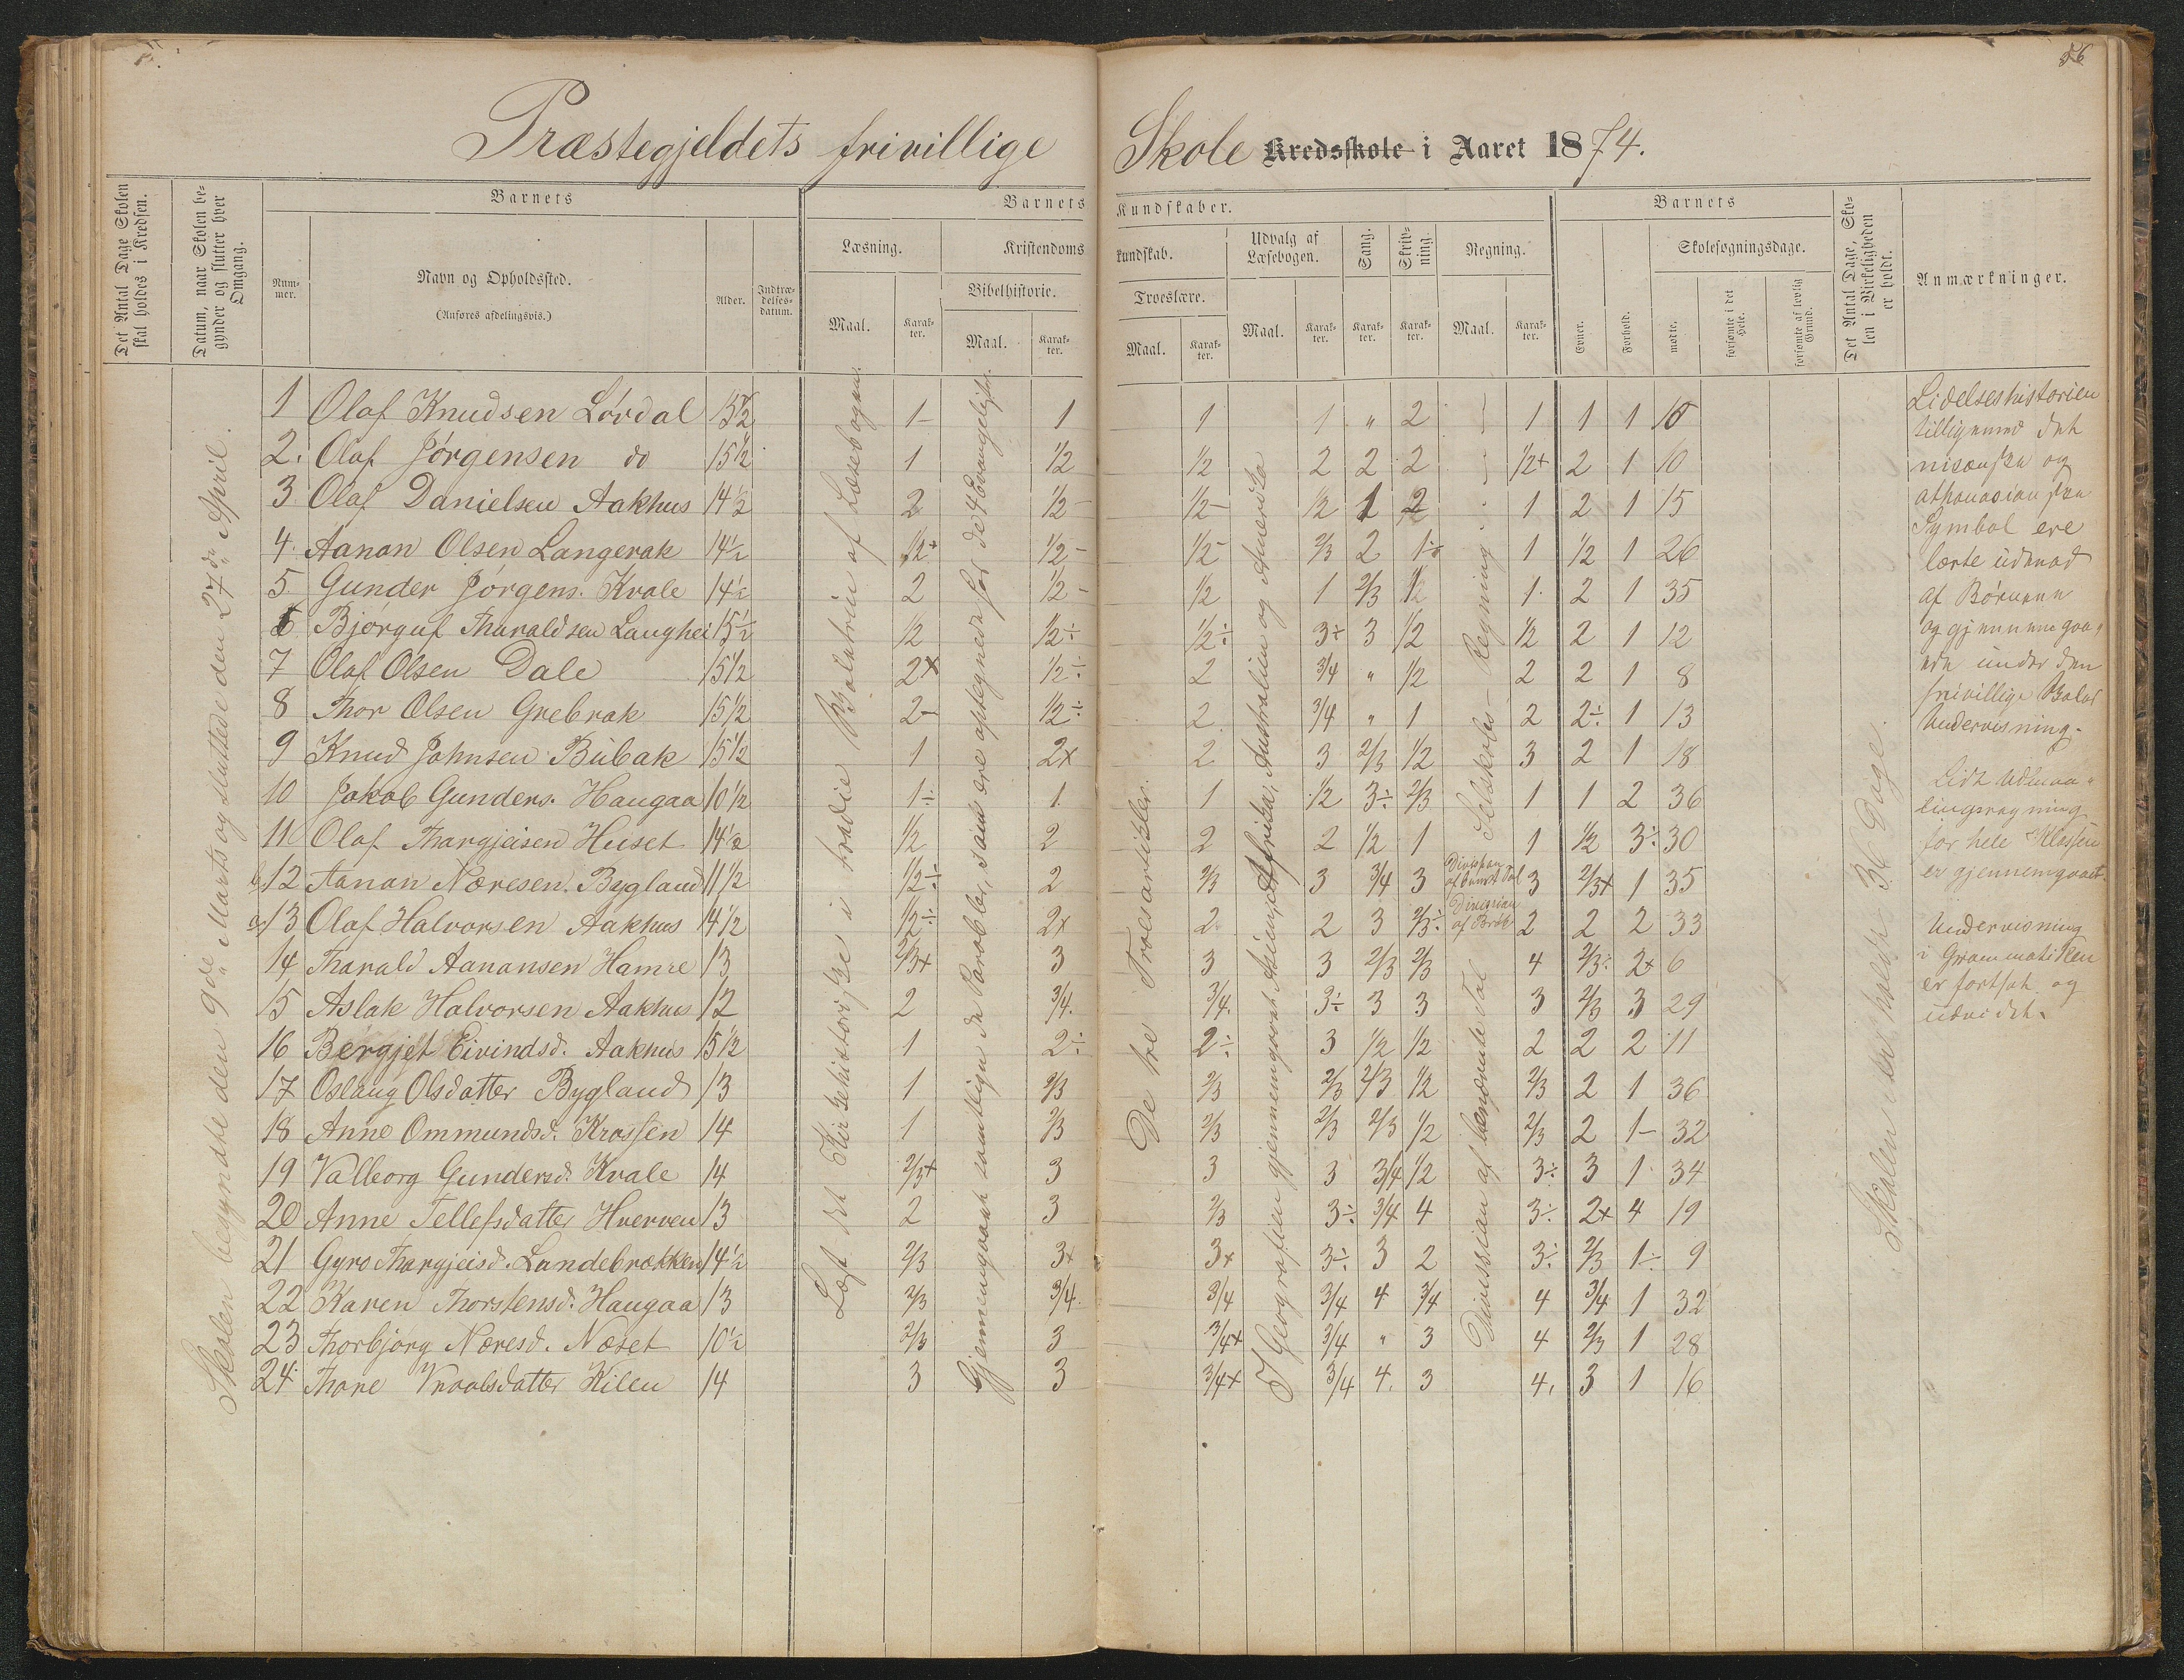 56
Præstegjeldets frivillige Skole Kredsskole i Aaret 1874.
Det Antal Dage Skolen skal holdes i Kredsen.
Datum, naar Skolen begynder og slutter hver Omgang.
Barnets
Nummer.
Navn og Opholdssted.
(Anføres afdelingsvis.)
Alder.
Indtrædelsesdatum.
Barnets Kundskaber.
Læsning.
Maal.
Karakter.
Kristendomskundskab.
Bibelhistorie.
Maal.
Karakter.
Troeslære.
Maal.
Karakter.
Udvalg af Læsebogen.
Maal.
Karakter.
Sang.
Karakter.
Skrivning.
Karakter.
Regning.
Maal.
Karakter.
Barnets
Evner.
Forhold.
Skolesøgningsdage.
mødte.
forsømte i det Hele.
forsømte af lovlig Grund.
Det Antal Dage, Skolen i Virkeligheden er holdt.
Anmærkninger.
Skolen begyndte den 9de Marts og sluttede den 27de April.
Læst det Kirkehistoriske i tredie af Læsebogen.
Gjennemgaaet samtlige de Parabler, som ere optegnede hos de 4 Evangelister.
De tre Troesartikler.
I Geografien gjennemgaaet Asien, Afrika, Australien og Amerika
Selskabs-Regning
Division af benævnte Tal
Skolen er holdt 36 Dage.
1 Olaf Knudsen Løvdal 15½ 1- 1 1 1 " 2 1 1 1 10
2. Olaf Jørgensen do 15½ 1 1/2 1/2 2 2 2 1/2+ 2 1 10
3 Olaf Danielsen Aakhus 14½ 2 1/2- 1/2- 1/2 1 2 1 2 1 15
4. Aanon Olsen Langerak 14½ 1/2+ 1/2- 1/2- 2/3 2 1÷ 1 1/2 1 26
5. Gunder Jørgens. Kvale 14½ 2 1/2- 1/2 1 2/3 1/2 1. 2 1 35
6 Bjørguf Tharaldsen Langhei 15½ 1/2 1/2÷ 1/2÷ 3÷ 3 1/2 1/2 2 1 12
7 Olaf Olsen Dale 15½ 2+ 1/2÷ 2 3/4 " 1/2 2 2 1 8
8 Thor Olsen Grebrok 15½ 2- 1/2÷ 2 3/4 " 1 2 2÷ 1 13
9 Knud Johnsen Bubak 15½ 1 2+ 2 3 2/3 1/2 3 2 1 18
10 Jakob Gunders. Haugaa 10½ 1÷ 1. 1 1/2 3÷ 2/3 1 1 2 36
11 Olaf Thargjeisen Huset 14½ 1/2 2 2 2 1/2 1 1 1/2 3÷ 30
12 Aanon Næresen Bygland 11½ 1/2÷ 2 2/3 3 3/4 3 Division af benævnt Tal 3 2/3+ 1 35
13 Olaf Halvorsen Aakhus 14½ 1/2÷ 2+ 2 2 3 2/3÷ Division af Brøk 2 2 2 33
14 Tharald Aanansen Hamre 13 2/3+ 3 3 3 2/3 2/3 4 2/3÷ 2+ 6
15 Aslak Halvorsen Aakhus 12 2 3/4. 3/4. 3÷ 3 3 3 2/3 3 29
16 Bergjet Eivindsd. Aakhus 15½ 1 2÷ 2÷ 3 1/2 1/2 2 2 2 11
17 Oslaug Olsdatter Bygland 13 1 2/3 2/3 2/3 2/3 1/2 2/3 2 1 36
18 Anne Ommundsd. Krossen 14 1 2/3 2/3 2/3 2/3 1/2 2/3 2 1- 32
19 Valborg Gundersd. Kvale 14 2/3+ 3 3 3 3/4 1/2 3÷ 3 1 34
20 Anne Tellefsdatter Hverven 13 2 3 2/3 3÷ 3/4 4 3÷ 2+ 4 19
21 Gyro Thargjeisd. Landebrokken 14½ 2/3 3+ 3+ 3÷ 3 2 3÷ 2/3 1÷ 9
22 Karen Thorstensd. Haugaa 13 2/3 3/4. 3/4 3/4 4 3/4 4 3/4 1 32
23 Thorbjørg Næresd. Næset 10½ 2/3 3 3/4+ 3/4 " 3 4 2/3 1 28
24. Thore Vraalsdatter Kilen 14 3 3 3/4+ 3/4 4. 3 4. 3 1 16
Lidelseshistorien
tilligemed det
nicænske og
athanasianske
Symbol ere
lærte udenad
af Børnene
og gjennemgaa-
ede under den
frivillige
Undervisning.
Lidt Udmaa-
lingsregning
for hele Klassen
er gjennemgaaet.
Undervisning
i Grammatiken
er fortsat og
udvidet.